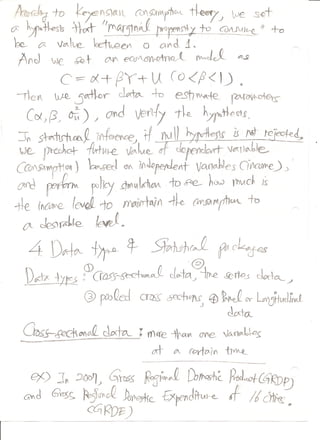 According to Keynesian consumption theory, we set
a hypothesis that "marginal propensity to consume" to
be a value between 0 and 1.
And we set an econometric model as
C = α + βY + U (0<β<1).
Then we gather data to estimate parameters
(α, β, σu²), and verify the hypothesis.
In statistical inference, if null hypothesis is not rejected,
we predict future value of dependent variable
(consumption) based on independent variables (income),
and perform policy simulation to see how much is
the income level to maintain the consumption to
a desirable level.
4 Data type & Statistical packages
Data types: ① Cross-sectional data, ② time series data,
③ pooled cross sections, ④ Panel or Longitudinal
data
Cross-sectional data : more than one variables
at a certain time
ex) In 2007, Gross Regional Domestic Product (GRDP)
and Gross Regional Domestic Expenditure of 16 cities.
(GRDE)